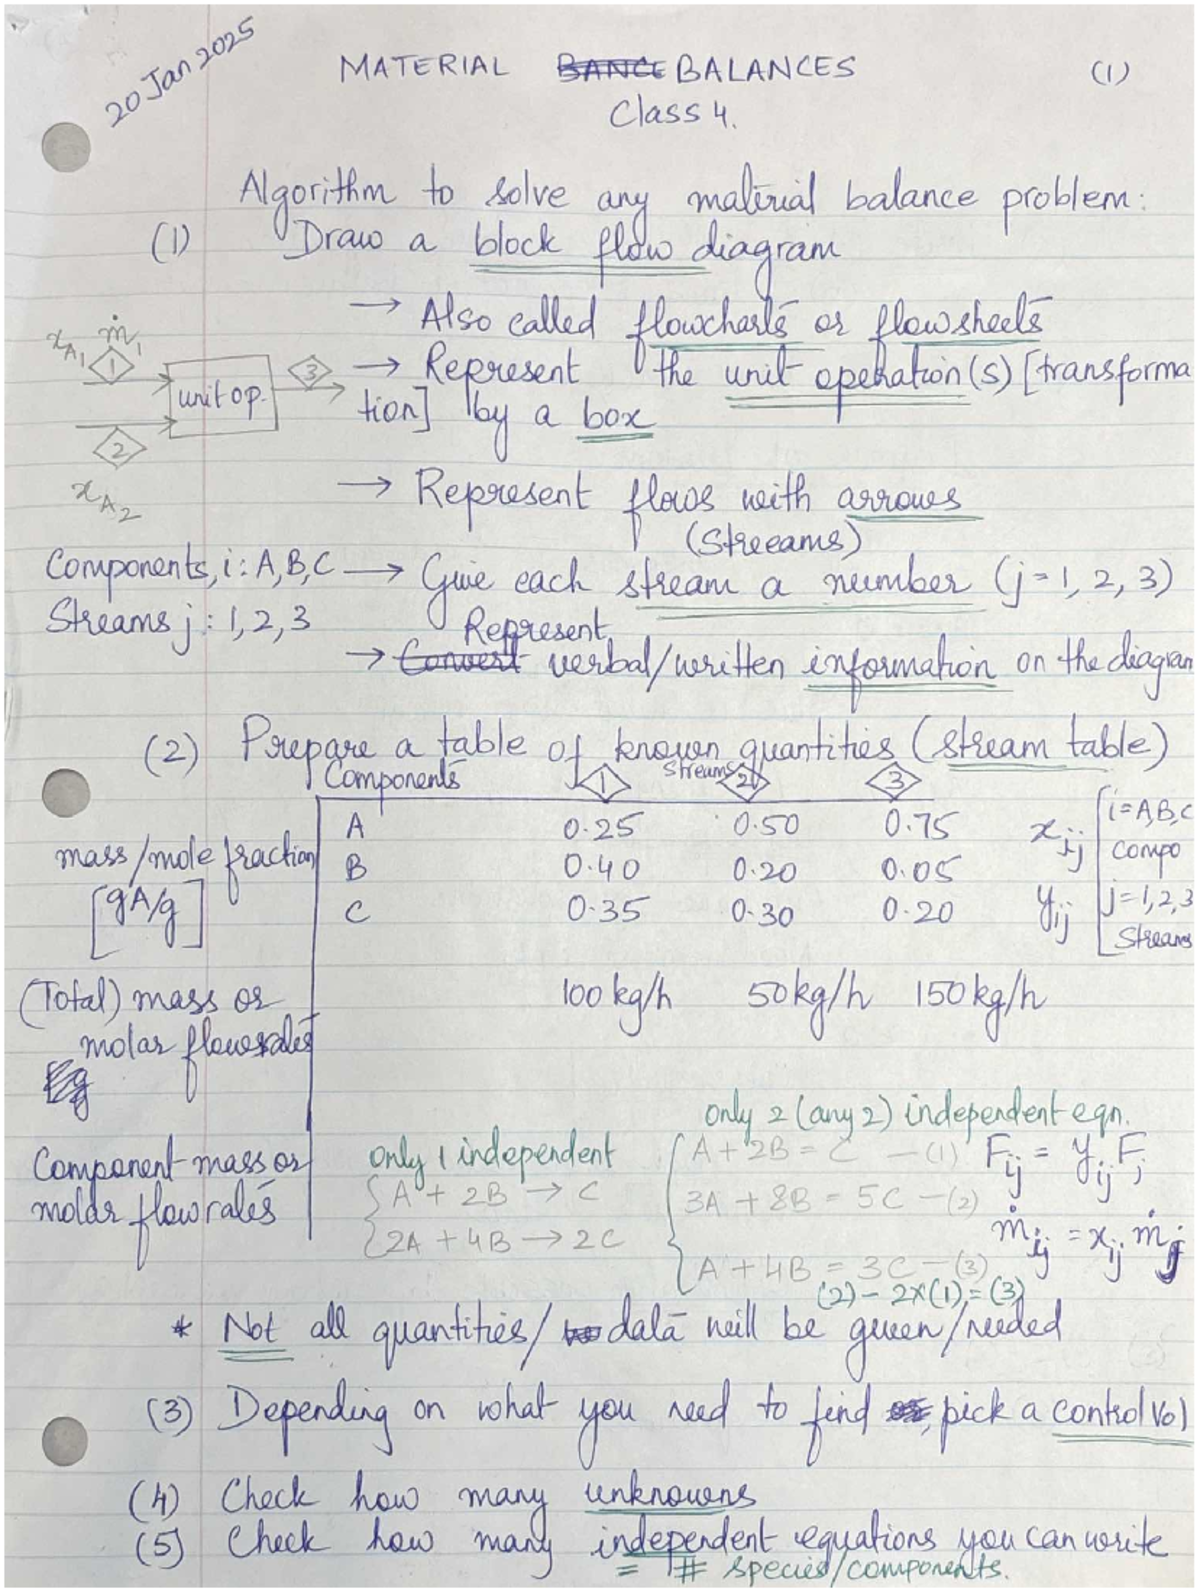 20 Jan 2025
MATERIAL BALANCES (1)
Class 4.
Algorithm to solve any material balance problem:
(1) Draw a block flow diagram
→ Also called flowcharts or flowsheets
xA1 ṁ1
1 unit op. 3 → Represent the unit operation(s) [transforma
tion] by a box
2
xA2 → Represent flows with arrows
(Streeams)
Components, i : A, B, C → Give each stream a number (j = 1, 2, 3)
Streams j : 1, 2, 3
Represent
→ Convert verbal/written information on the diagram
(2) Prepare a table of known quantities (stream table)
Components 1 Streams 2 3
A 0.25 0.50 0.75 xij [i = A,B,C
mass/mole fraction B 0.40 0.20 0.05 compo
[gA/g] C 0.35 0.30 0.20 yij j = 1,2,3
Streams
(Total) mass or 100 kg/h 50 kg/h 150 kg/h
molar flowrates
Eg
only 2 (any 2) independent eqn.
Component mass or only 1 independent { A + 2B = C — (1) Fij = yij Fj
molar flowrates { A + 2B → C 3A + 8B = 5C — (2)
2A + 4B → 2C ṁij = xij ṁj
A + 4B = 3C — (3)
(2) - 2×(1) = (3)
* Not all quantities/ data will be given/needed
(3) Depending on what you need to find, pick a control vol
(4) Check how many unknowns
(5) Check how many independent equations you can write
= # species/components.